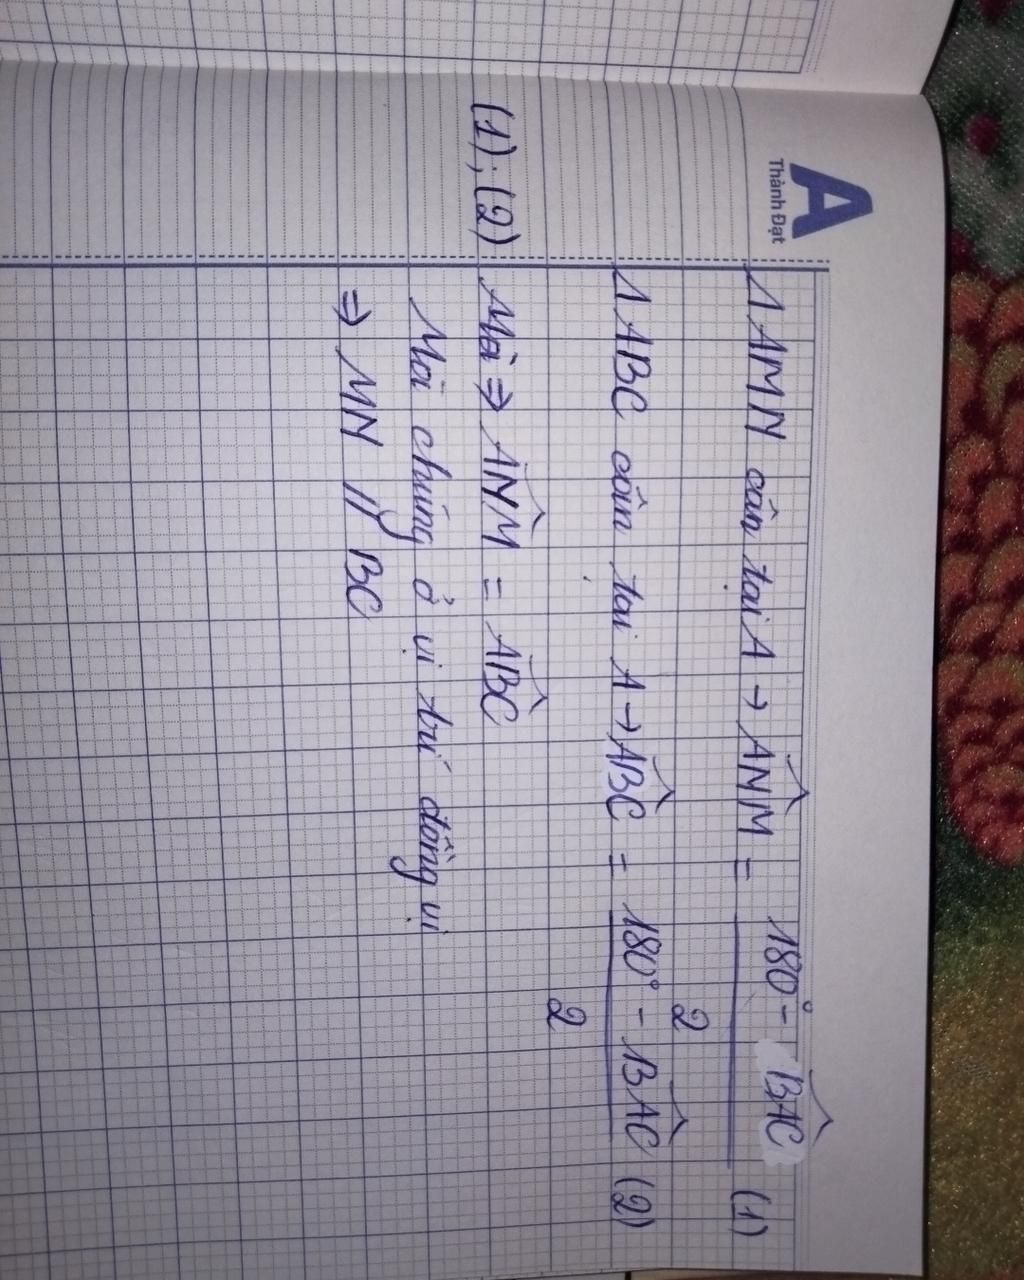 A
Thành Đạt
Δ AMN cân tại A → $\widehat{ANM}$ = $\frac{180° - \widehat{BAC}}{2}$ (1)
Δ ABC cân tại A → $\widehat{ABC}$ = $\frac{180° - \widehat{BAC}}{2}$ (2)
(1); (2) Mà ⇒ $\widehat{ANM}$ = $\widehat{ABC}$
Mà chúng ở vị trí đồng vị
⇒ MN // BC